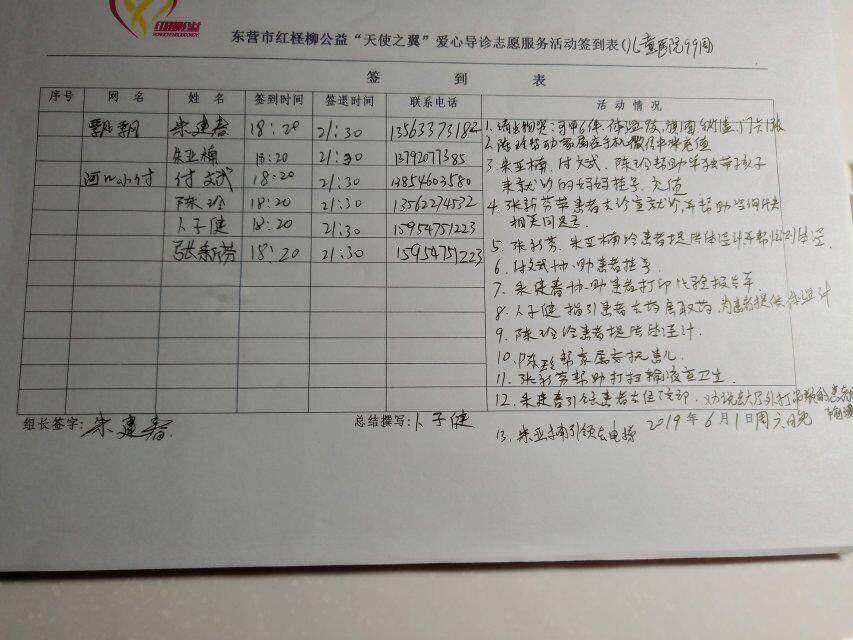 红柽柳公益
东营市红柽柳公益“天使之翼”爱心导诊志愿服务活动签到表(儿童医院99周)
签到表
序号 网名 姓名 签到时间 签退时间 联系电话 活动情况
飘飘 朱建春 18:20 21:30 13563373182
朱亚楠 18:20 21:30 13792077385
付文斌 18:20 21:30 13854603580
陈玲 18:20 21:30 13562274532
卜子健 18:20 21:30 15954751223
张新芳 18:20 21:30 15954751223
1、马甲6件、体温
2、陈玲帮助家属在手机微信中充值
3、朱亚楠、付文斌、陈玲帮助单独带孩子
来就诊的妈妈挂号、充值
4、张新芳带患者去诊室就诊,并帮助咨询
相关问题.
5、张新芳、朱亚楠给患者提供体温计并帮
6、付文斌协助患者挂号
7、朱建春协助患者打印化验报告单
8、卜子健指引患者去药房取药,为患者提供体温计
9、陈玲给患者提供体温计.
10、陈玲帮家属看护患儿
11、张新芳帮助打扫输液室卫生.
12、朱建春引领患者去住院部,
组长签字: 朱建春 总结撰写: 卜子健
13、朱亚楠引领去电梯 2019年6月1日周六晚